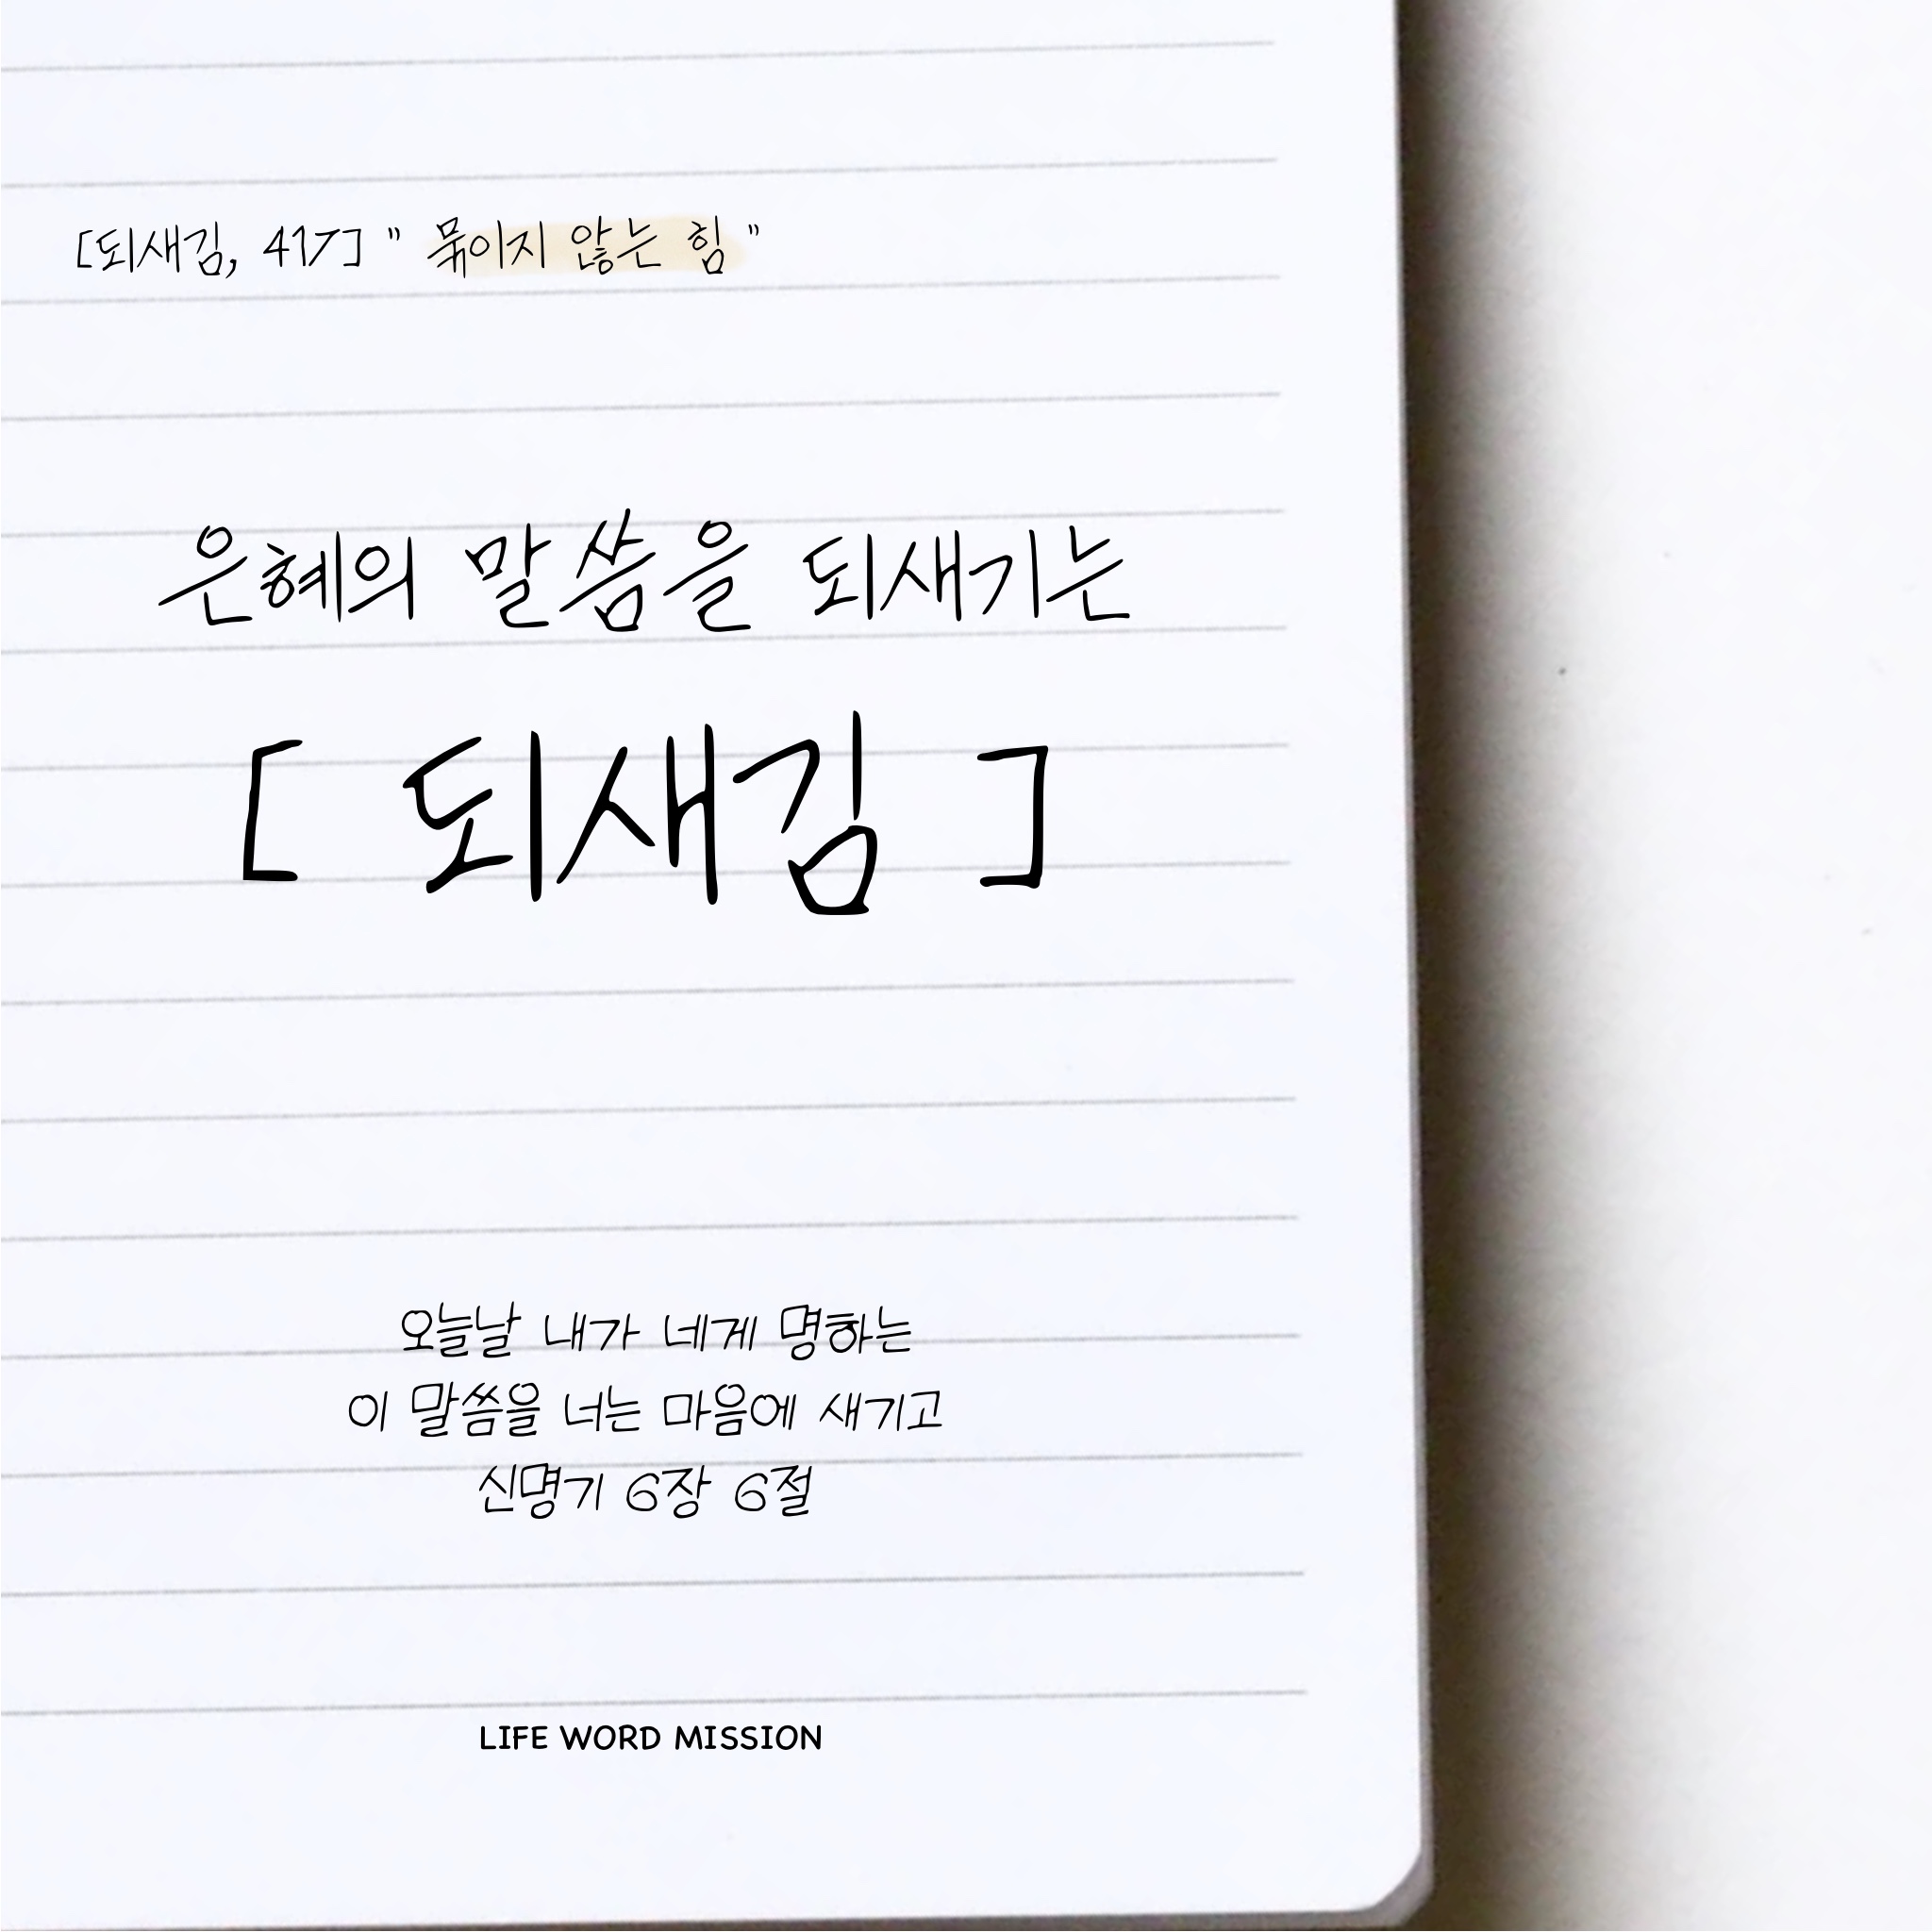 [되새김, 417] " 묶이지 않는 힘 "
은혜의 말씀을 되새기는
[ 되새김 ]
오늘날 내가 네게 명하는
이 말씀을 너는 마음에 새기고
신명기 6장 6절
LIFE WORD MISSION